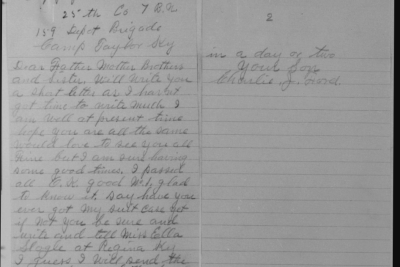 25th Co 7 B.N
159 Depot Brigade
Camp Taylor Ky
Dear Father Mother Brothers
and Sister. Will Write you
a short letter as I havent
got time to write much I
am Well at present time
hope you are all the same
would love to see you all
time but I am sure having
some good times. I passed
all O.K good Wt, glad
to know it, Say have you
ever got My suit case yet
if not you be sure and
write and tell Miss Ella
Slagle at Regina Ky
I guess I Will send the
2
in a day or two
Your Son
Charlie J. Ford